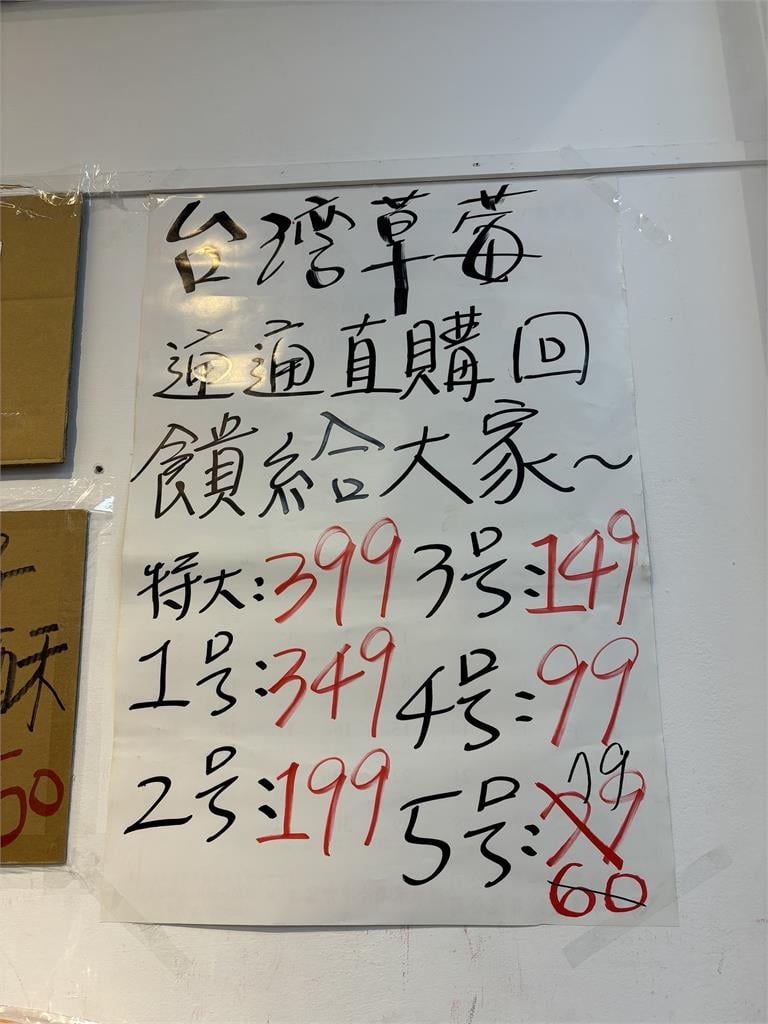 台湾草莓
通通直購回
饋給大家~
特大:399
3号:149
1号:349
4号:99
2号:199
5号:79
60
酥
50